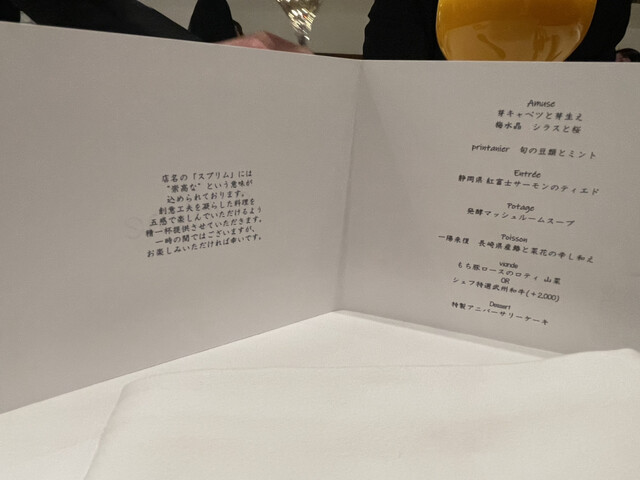 店名の「スプリム」には
"崇高な"という意味が
込められております。
創意工夫を凝らした料理を
五感で楽しんでいただけるよう
精一杯提供させていただきます。
一時の間ではございますが、
お楽しみいただければ幸いです。
Amuse
芽キャベツと芽生え
梅水晶 シラスと桜
printanier 旬の豆類とミント
Entrée
静岡県 紅富士サーモンのティエド
Potage
発酵マッシュルームスープ
Poisson
一陽来復 長崎県産鰆と菜花の辛し和え
viande
もち豚ロースのロティ 山菜
OR
シェフ特選武州和牛(+2,000)
Dessert
特製アニバーサリーケーキ